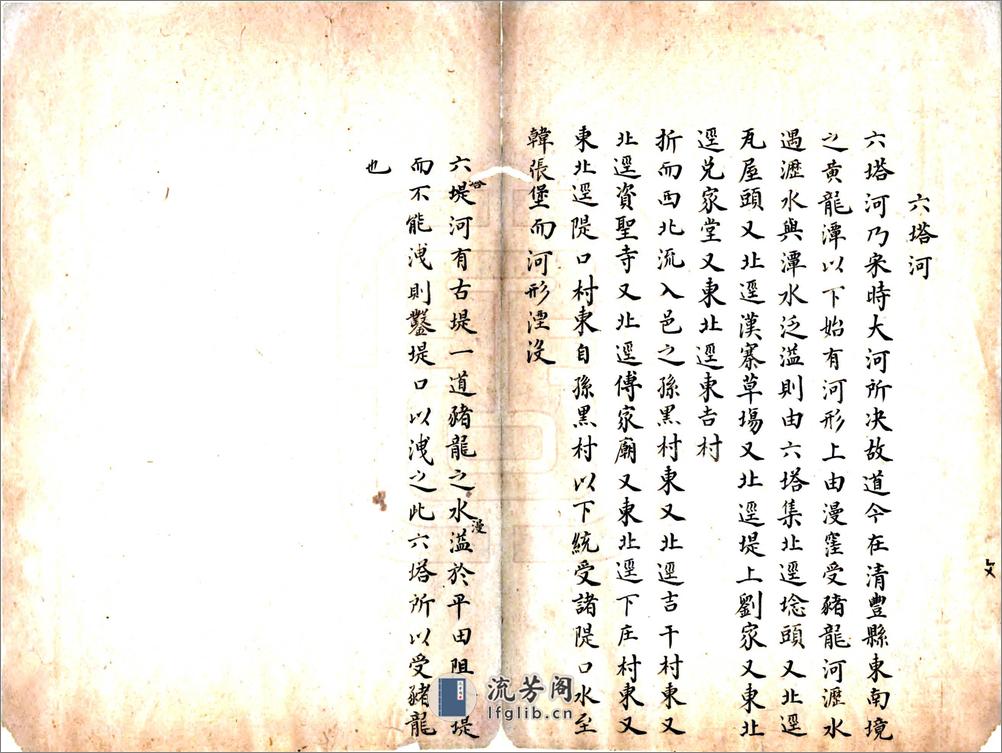 六塔河
六塔河乃宋時大河所决故道今在清豐縣東南境
之黄龍潭以下始有河形上由漫窪受豬龍河瀝水
遇瀝水與潭水泛溢則由六塔集北逕埝頭又北逕
瓦屋頭又北逕漢寨草塲又北逕堤上劉家又東北
逕兑家堂又東北逕東吉村
折而西北流入邑之孫黑村東又北逕吉干村東又
北逕資聖寺又北逕傅家廟又東北逕下庄村東又
東北逕隄口村東自孫黑村以下統受諸隄口水至
韓張堡而河形湮没
六堤河有古堤一道豬龍之水溢於平田阻堤
漫
而不能洩則鑿堤口以洩之此六塔所以受豬龍
也
流芳阁
lfglib.cn